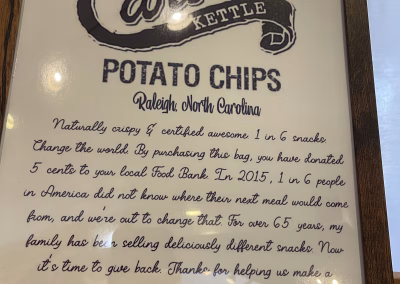 KETTLE
POTATO CHIPS
Raleigh, North Carolina
Naturally crispy & certified awesome. 1 in 6 snacks
Change the world. By purchasing this bag, you have donated
5 cents to your local Food Bank. In 2015, 1 in 6 people
in America did not know where their next meal would come
from, and we're out to change that. For over 65 years, my
family has been selling deliciously different snacks. Now
it's time to give back. Thanks for helping us make a